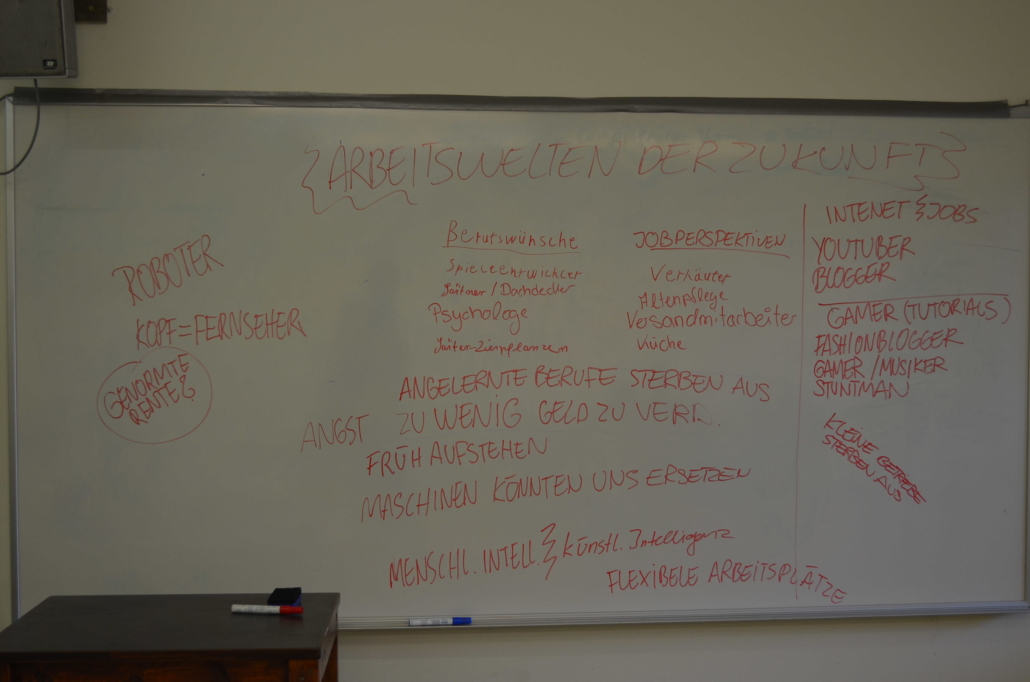 ARBEITSWELTEN DER ZUKUNFT
ROBOTER
KOPF=FERNSEHER
GENORMTE
RENTE?
Berufswünsche
Spieleentwickler
/Dachdecker
Psychologe
Gärtner Zierpflanzen
JOBPERSPEKTIVEN
Verkäufer
Altenpflege
Versandmitarbeiter
Küche
ANGELERNTE BERUFE STERBEN AUS
ANGST ZU WENIG GELD ZU VERD.
FRÜH AUFSTEHEN
MASCHINEN KÖNNTEN UNS ERSETZEN
MENSCHL. INTELL. künstl. Intelligenz
FLEXIBELE ARBEITSPLÄTZE
INTENET JOBS
YOUTUBER
BLOGGER
GAMER (TUTORIALS)
FASHIONBLOGGER
GAMER /MUSIKER
STUNTMAN
KLEINE BETRIEBE
STERBEN AUS